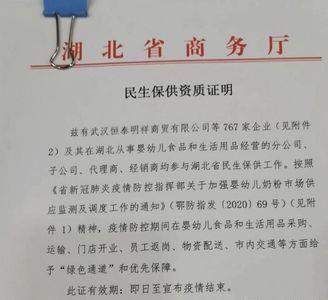 湖北省商务厅
民生保供资质证明
兹有武汉恒泰明祥商贸有限公司等 767 家企业（见附件
2）及其在湖北从事婴幼儿食品和生活用品经营的分公司、
子公司、代理商、经销商均参与湖北省民生保供工作。按照
《省新冠肺炎疫情防控指挥部关于加强婴幼儿奶粉市场供
应监测及调度工作的通知》（鄂防指发〔2020〕69 号）（见附
件 1）精神，疫情防控期间在婴幼儿食品和生活用品采购、
运输、门店开业、员工返岗、物资配送、市内交通等方面给
予“绿色通道”和优先保障。
此证有效期：即日至宣布疫情结束。